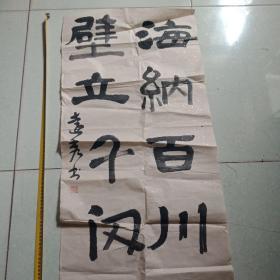 海納百川
壁立千仞